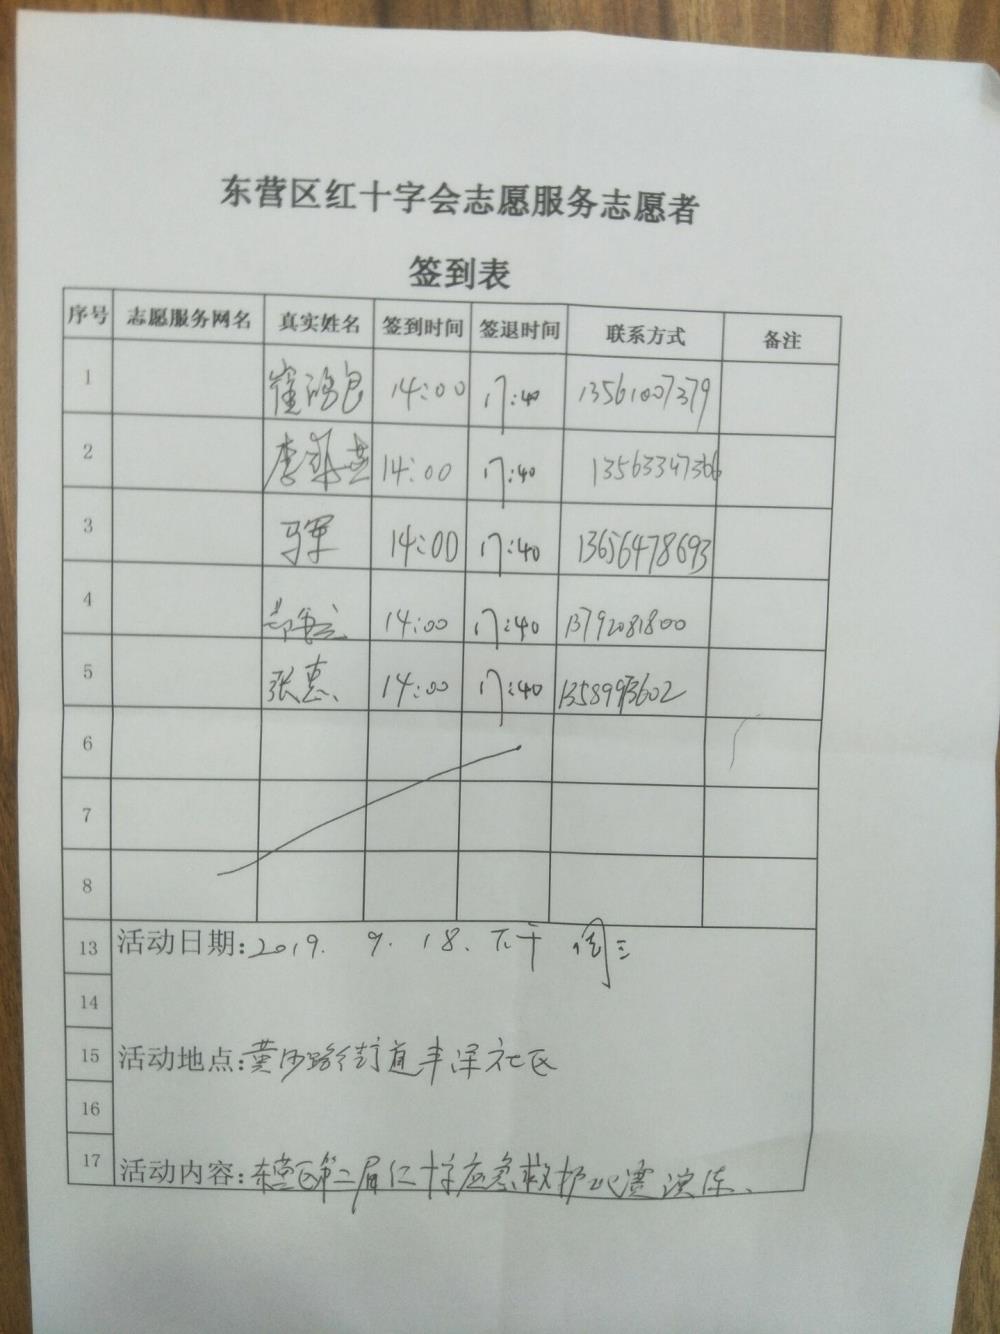 东营区红十字会志愿服务志愿者
签到表
序号 志愿服务网名 真实姓名 签到时间 签退时间 联系方式 备注
1 14:00 17:40 13561007379
2 李 燕 14:00 17:40 13563347366
3 马军 14:00 17:40 13656478693
4 14:00 17:40 13792081800
5 张惠 14:00 17:40
6
7
8
13 活动日期:2019. 9. 18. 下午 周三
14
15 活动地点:黄河路街道丰泽社区
16
17 活动内容:东营区第二届红十字应急救护比赛演练.